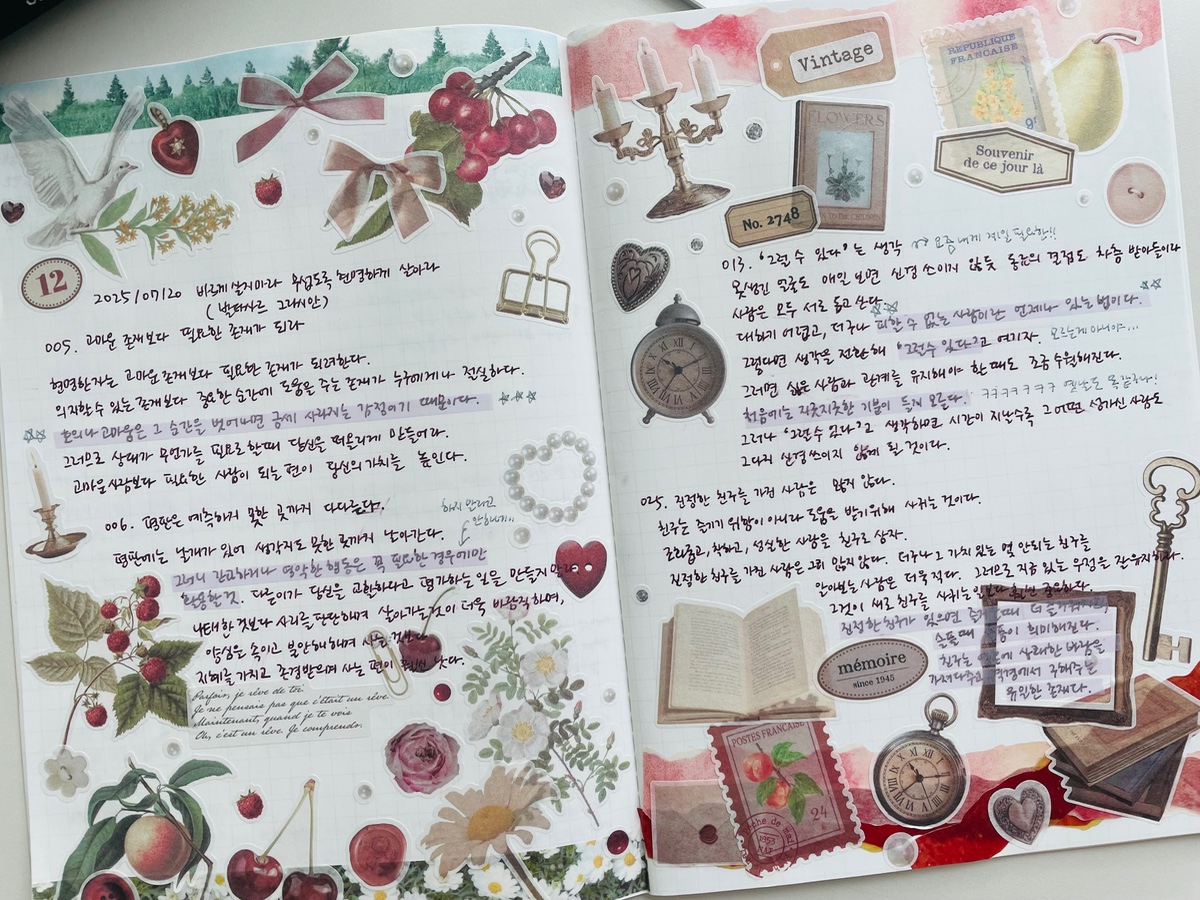 12
2025/07/20 바르게 살지마라 무섭도록 현명하게 살아라
(발타사르 그라시안)
005. 고마운 존재보다 필요한 존재가 되라
현명한자는 고마운 존재보다 필요한 존재가 되려한다.
의지할 수 있는 존재보다 중요한 순간에 도움을 주는 존재가 누구에게나 절실하다.
호의나 고마움은 그 순간을 벗어나면 금세 사라지는 감정이기 때문이다.
그러므로 상대가 무언가를 필요로 한때 당신을 떠올리게 만들어라.
고마운 사람보다 필요한 사람이 되는 편이 당신의 가치를 높인다.
006. 평판은 예측하지 못한 곳까지 다다른다.
하지 말라고
안하네!!
평판에는 날개가 있어 생각지도 못한 곳까지 날아간다.
그러니 간교하거나 영악한 행동은 꼭 필요한 경우에만
활용할 것. 다른이가 당신을 교활하다고 평가하는 일을 만들지 말라
나태한 것보다 사리를 판단하며 살아가는 것이 더욱 바람직하며,
양심을 속이고 불안해하며 사는 것보다
지혜를 가지고 존경받으며 사는 편이 훨씬 낫다.
Parfois, je rêve de toi.
Je ne pensais pas que c'était un rêve
Maintenant, quand je te vois
Oh, c'est un rêve. Je comprends.
Vintage
REPUBLIQUE
FRANCAISE
9f
FLOWERS
Souvenir
de ce jour là
No. 2748
013. "그럴 수 있다"는 생각 요즘 내게 제일 필요한!!
못생긴 얼굴도 매일 보면 신경 쓰이지 않듯 동료의 결점도 차츰 받아들이라
사람은 모두 서로 돕고 산다.
대하기 어렵고, 더구나 피할 수 없는 사람이란 언제나 있는 법이다.
그렇다면 생각을 전환해 "그럴 수 있다"고 여기자. 모르는게 아니야...
그러면 싫은 사람과 관계를 유지해야 한 때도 조금 수월해진다.
처음에는 지긋지긋한 기분이 들지 모른다. ㅋㅋㅋㅋㅋㅋ 옛날도 똑같구나!
그러나 "그럴 수 있다"고 생각하면 시간이 지날수록 그 어떤 성가신 사람도
그다지 신경 쓰이지 않게 될 것이다.
025. 진정한 친구를 가진 사람은 많지 않다.
친구는 즐기기 위함이 아니라 도움을 받기 위해 사귀는 것이다.
지혜롭고, 착하고, 성실한 사람을 친구로 삼자.
진정한 친구를 가진 사람은 그리 많지 않다. 더구나 그 가치 있는 몇 안되는 친구를
알아보는 사람은 더욱 적다. 그러므로 지금 있는 우정을 잘 유지하자.
그것이 새로 친구를 사귀는 일보다 훨씬 중요하다.
진정한 친구가 있으면 때 더 즐거워지고
슬플때 통이 희미해진다.
친구는 바람을
가져다주고 역경에서 구해주는
유일한 존재다.
mémoire
since 1945
POSTES FRANCAISE
24
1953